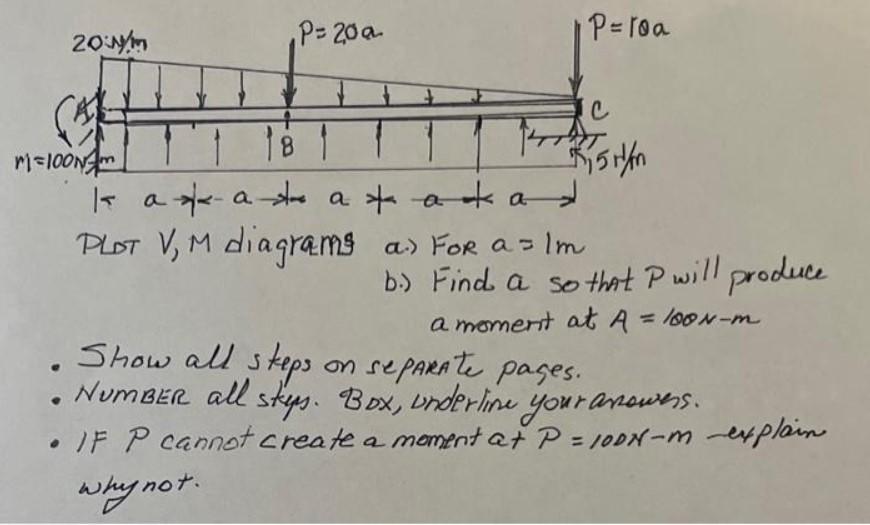 P=20a
P=10a
20 N/m
A
C
M=100N-m
B
15 N/m
a a a a a
PLOT V, M diagrams a.) FOR a = 1m
b.) Find a so that P will produce
a moment at A = 100N-m
• Show all steps on separate pages.
• NUMBER all steps. Box, underline your answers.
• IF P cannot create a moment at P = 100N-m -explain
why not.